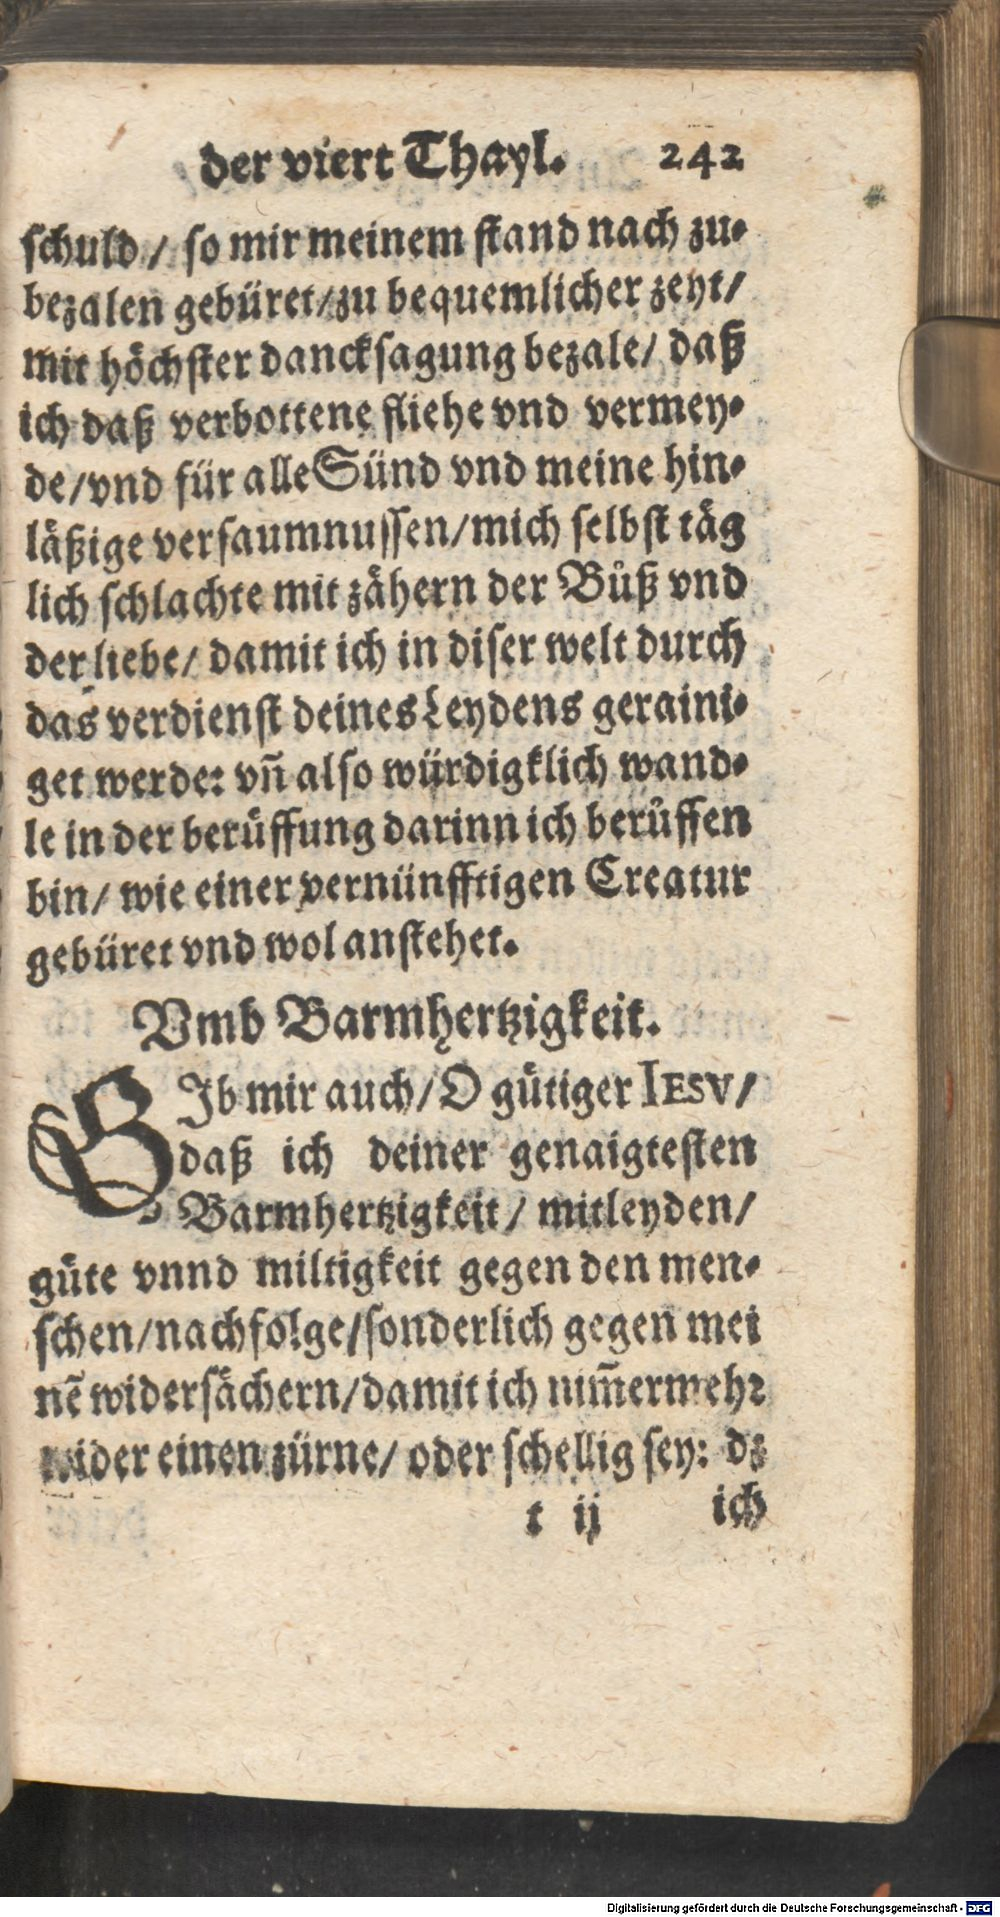 der viert Thayl. 242
schuld / so mir meinem stand nach zu-
bezalen gebüret/zu bequemlicher zeyt/
mit höchster dancksagung bezale/ daß
ich daß verbottene fliehe vnd vermey-
de/vnd für alle Sünd vnd meine hin-
läßige versaumnussen/mich selbst täg
lich schlachte mit zähern der Bůß vnd
der liebe/ damit ich in diser welt durch
das verdienst deines Leydens geraini-
get werde: vñ also würdigklich wand-
le in der berůffung darinn ich berůffen
bin/ wie einer vernünfftigen Creatur
gebüret vnd wol anstehet.
Vmb Barmhertzigkeit.
GIb mir auch/ O gütiger IESV/
daß ich deiner genaigtesten
Barmhertzigkeit/ mitleyden/
güte vnnd miltigkeit gegen den men-
schen/nachfolge/sonderlich gegen mei
nẽ widersächern/damit ich nim̃ermehr
wider einen zürne/ oder schellig sey: dz
t ij ich
Digitalisierung gefördert durch die Deutsche Forschungsgemeinschaft - DFG